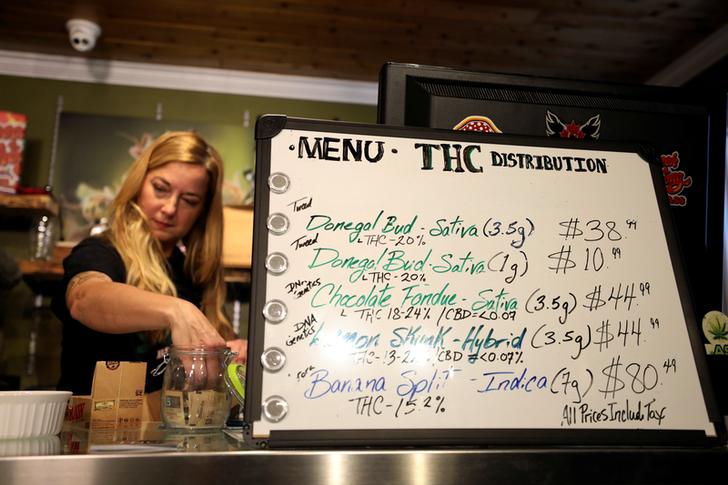 ·MENU· THC DISTRIBUTION
Tweed
Donegal Bud - Sativa (3.5g) $38.99
└THC-20%
Tweed
Donegal Bud - Sativa (1g) $10.99
└THC-20%
DNA Genetics
Chocolate Fondue - Sativa (3.5g) $44.99
└ THC 18-24% / CBD=<0.07
DNA Genetics
Lemon Skunk - Hybrid (3.5g) $44.99
/CBD =<0.07%
Banana Split - Indica (7g) $80.49
THC-15.2%
All Prices Include Tax